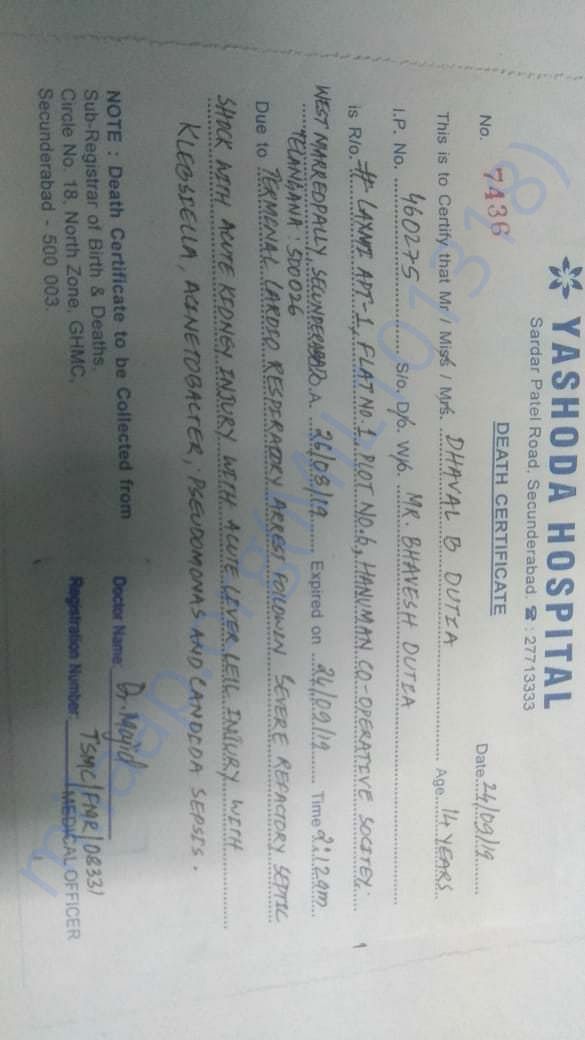 YASHODA HOSPITAL
Sardar Patel Road, Secunderabad. ☎ : 27713333
DEATH CERTIFICATE
No. 7436 Date 24/09/19
This is to Certify that Mr / Miss / Mrs. DHAVAL B DUTIA Age 14 YEARS
I.P. No. 460275 S/o. D/o. W/o. MR. BHAVESH DUTIA
is R/o. # LAXMI APT-1, FLAT NO. 1, PLOT NO. 6, HANUMAN CO-OPERATIVE SOCITEY.
WEST MARREDPALLY SECUNDERABAD A. 26/08/19 Expired on 24/09/19 Time 2:12am
TELANGANA 500026
Due to TERMENAL CARDIO RESPIRATORY ARREST FOLLOWIN SEVERE REFACTORY SEPTIC
SHOCK WITH ACUTE KIDNEY INJURY WITH ACUTE LIVER CELL INJURY WITH
KLEBSIELLA, ACINETOBACTER, PSEUDOMONAS AND CANDIDA SEPSIS.
NOTE : Death Certificate to be Collected from
Sub-Registrar of Birth & Deaths,
Circle No. 18, North Zone, GHMC,
Secunderabad - 500 003.
Doctor Name: Dr. Majid
Registration Number TSMC/FMR/08331
MEDICAL OFFICER